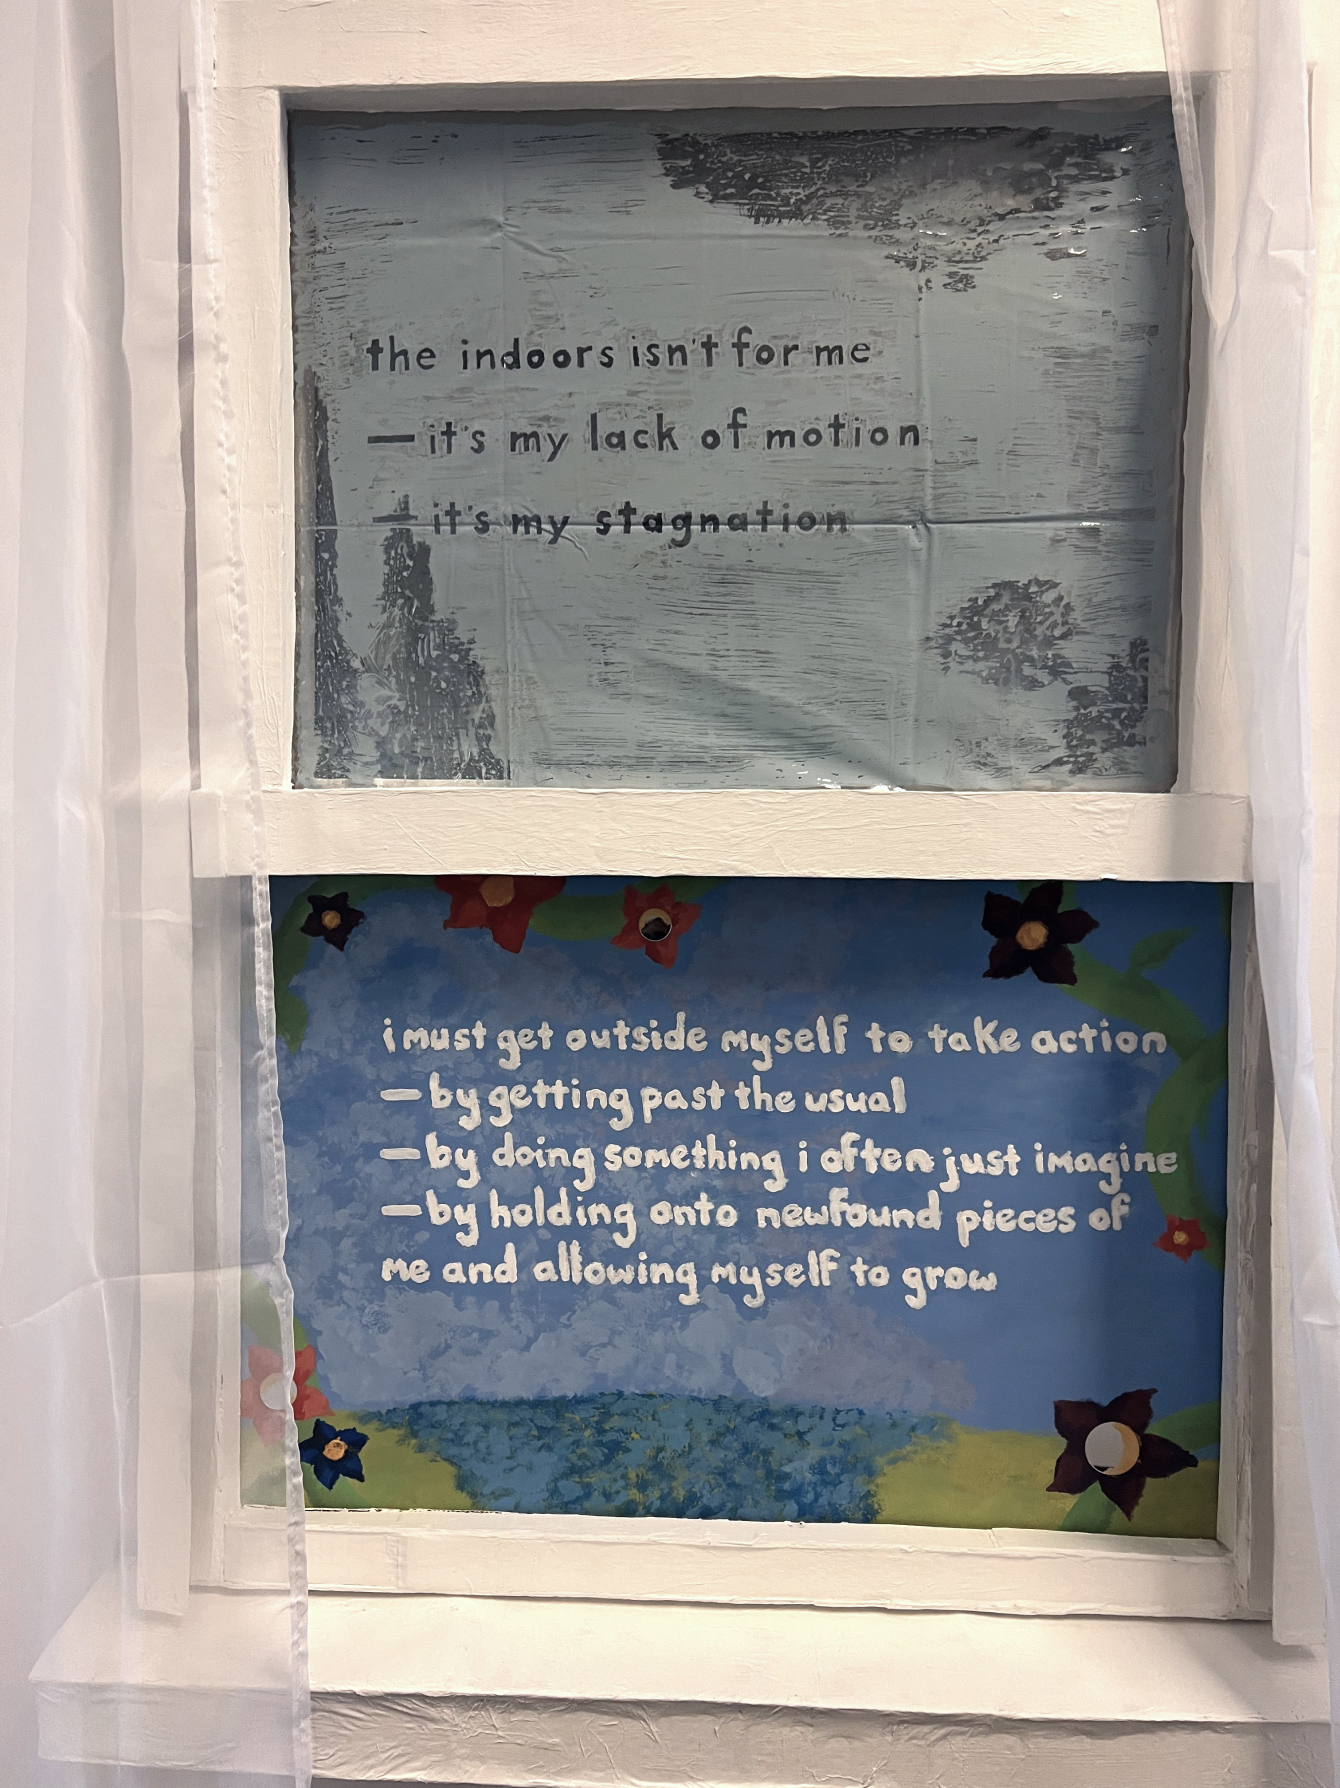 the indoors isn't for me
— it's my lack of motion
— it's my stagnation
i must get outside myself to take action
— by getting past the usual
— by doing something i often just imagine
— by holding onto newfound pieces of
me and allowing myself to grow